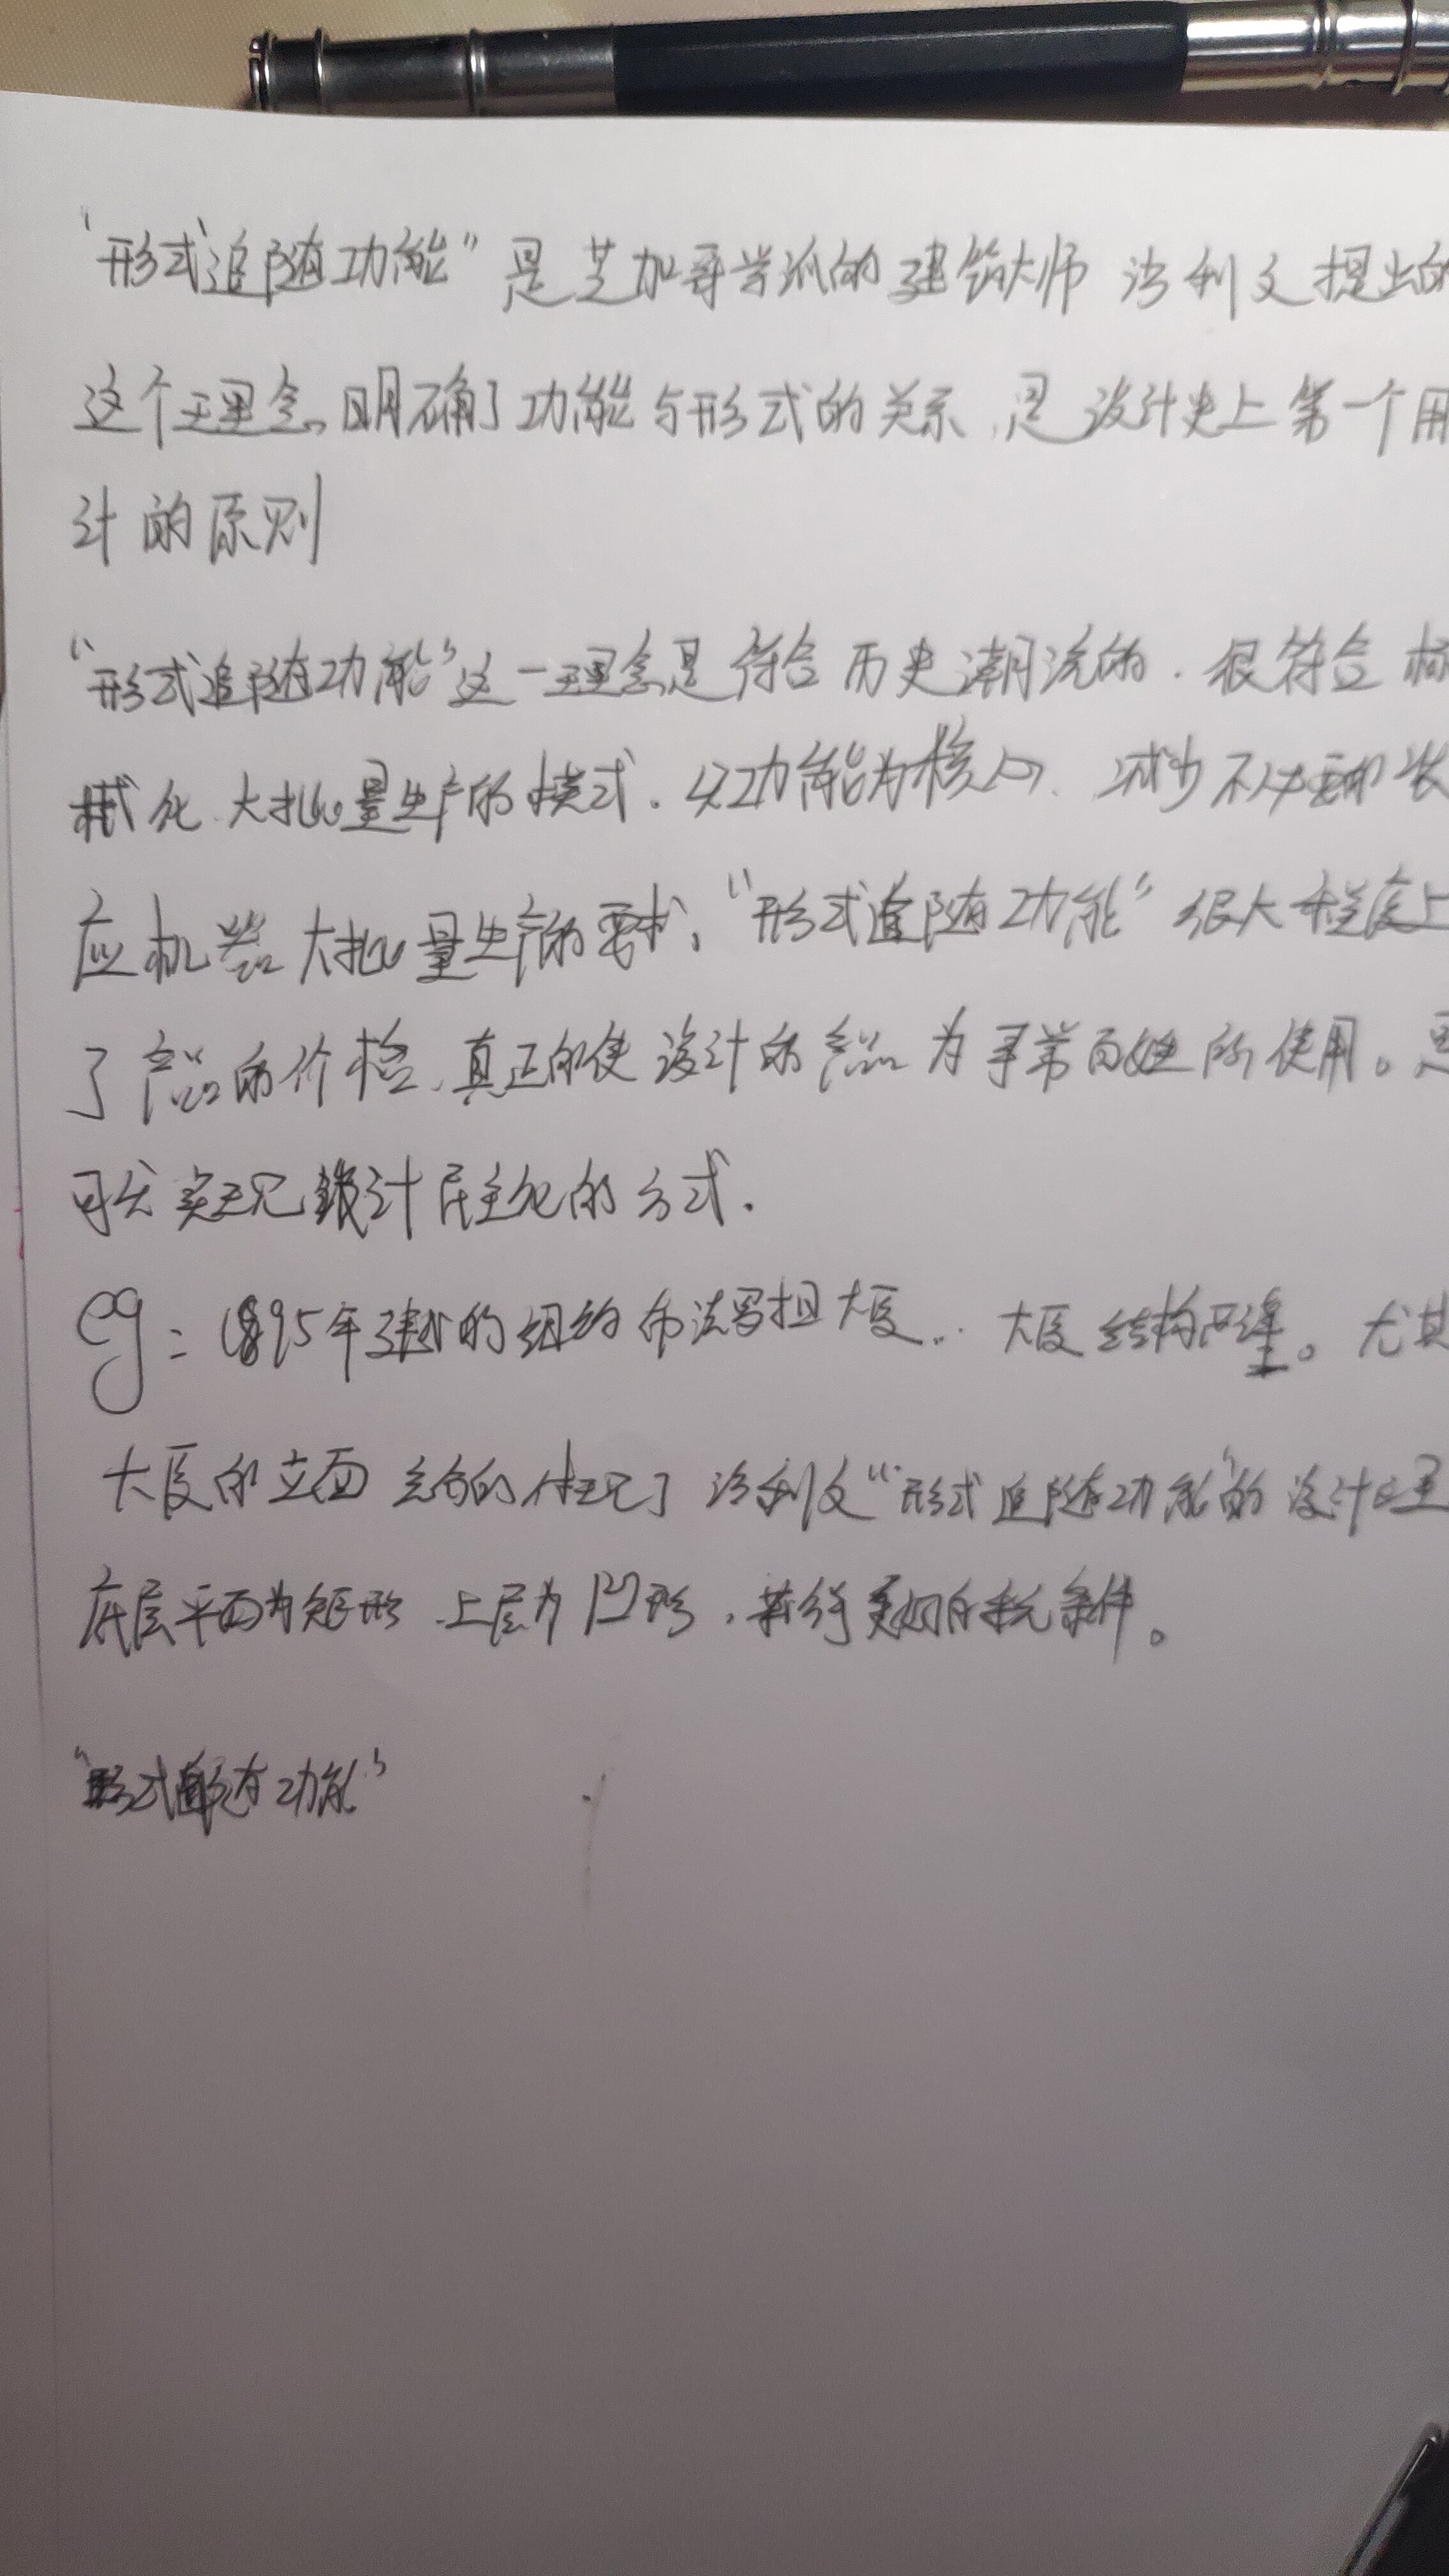 “形式追随功能”是芝加哥学派的建筑大师 沙利文提出的
这个理念。明确了功能与形式的关系,是设计史上第一个用
计的原则
“形式追随功能”这一理念是符合历史潮流的.很符合
械化.大批量生产的模式.以功能为核心.减少不必要的装
应机器大批量生产的要求,“形式追随功能”很大程度上
了产品的价格,真正的使设计的产品为寻常百姓所使用。是
实现设计民主化的方式.
eg:1895年建成的纽约布法罗担大厦..大厦结构严谨。尤其
大厦的立面充分的体现了沙利文“形式追随功能”的设计理
底层平面为矩形.上层为凹形,获得更好自然条件。
“形式追随功能”